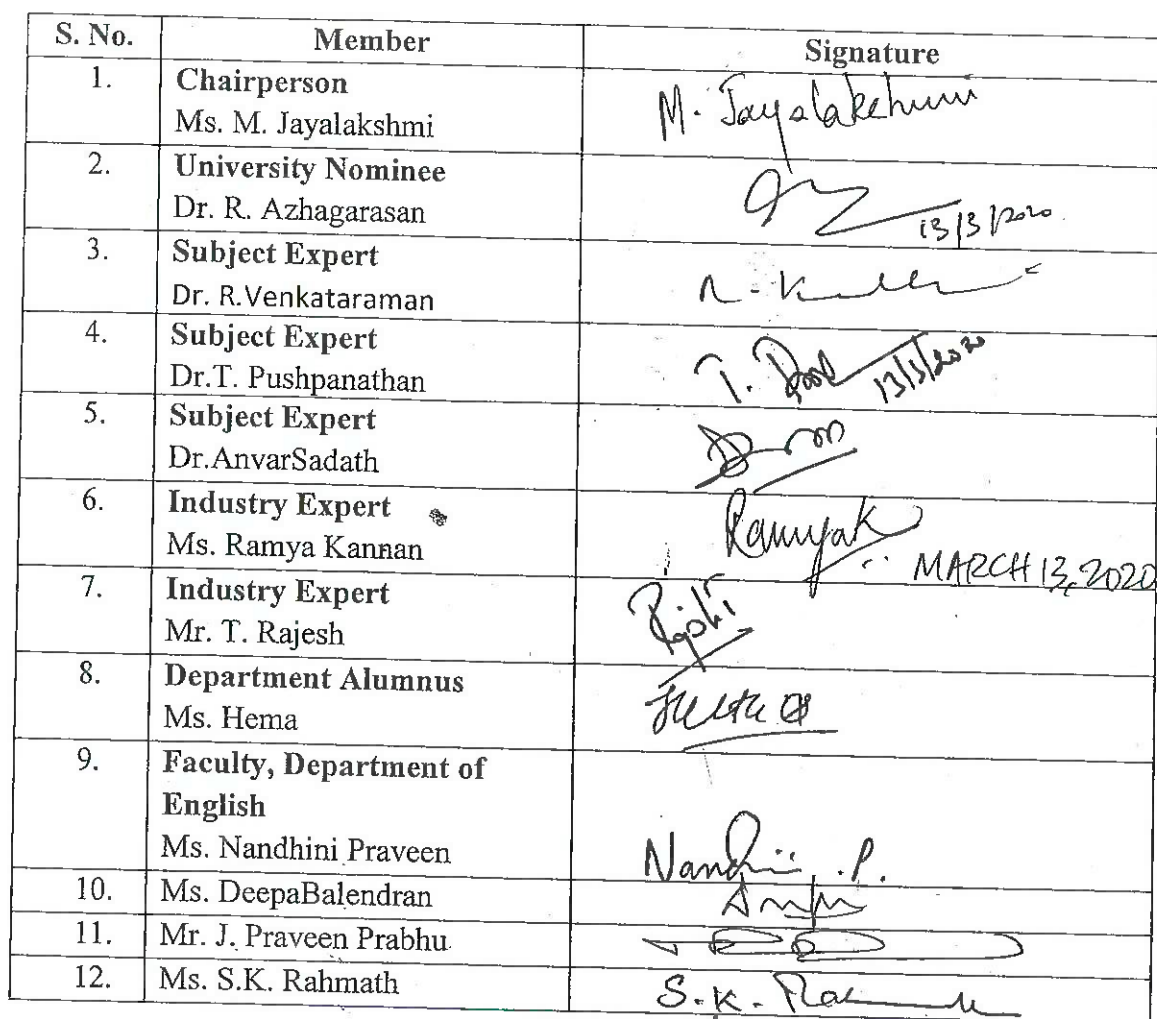 S. No. Member Signature
1. Chairperson
Ms. M. Jayalakshmi M. Jayalakshmi
2. University Nominee
Dr. R. Azhagarasan 13/3/2020
3. Subject Expert
Dr. R.Venkataraman
4. Subject Expert
Dr.T. Pushpanathan T. 13/3/2020
5. Subject Expert
Dr.AnvarSadath
6. Industry Expert
Ms. Ramya Kannan RamyaK
MARCH 13, 2020
7. Industry Expert
Mr. T. Rajesh
8. Department Alumnus
Ms. Hema
9. Faculty, Department of
English
Ms. Nandhini Praveen Nandhini .P.
10. Ms. DeepaBalendran
11. Mr. J. Praveen Prabhu
12. Ms. S.K. Rahmath S.K. Rahmath